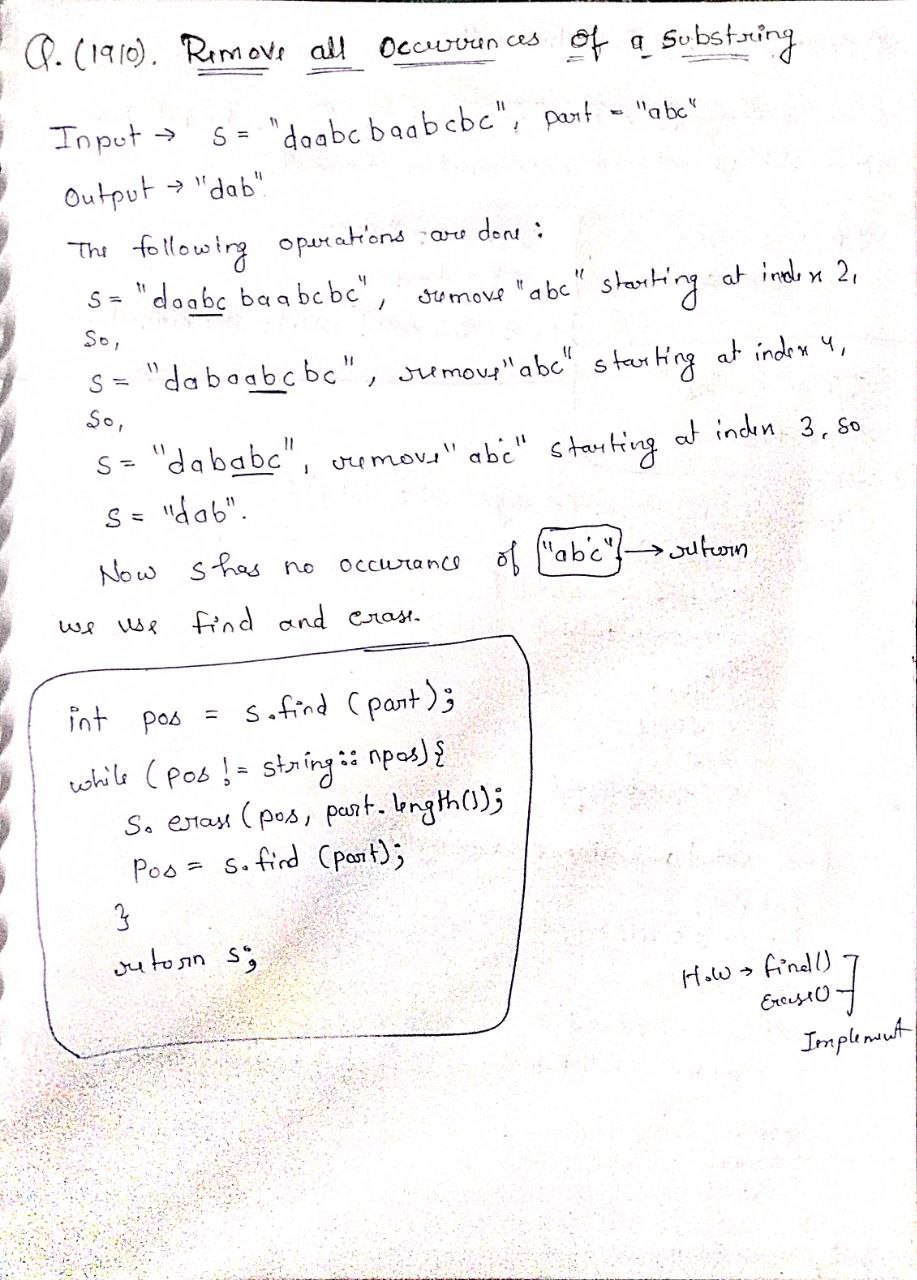 Q. (1910). Remove all Occurrences of a Substring
Input → S = "daabcbaabcbc", part = "abc"
Output → "dab"
The following operations are done :
S = "daabc baabcbc", remove "abc" starting at index 2,
So,
S = "dabaabcbc", remove "abc" starting at index 4,
So,
S = "dababc", remove "abc" starting at index 3, so
S = "dab".
Now s has no occurance of "abc" → return
we use find and erase.
int pos = s.find (part);
while (pos != string::npos) {
s. erase (pos, part.length());
Pos = s.find (part);
}
return s;
How → find()
Erase()
Implement